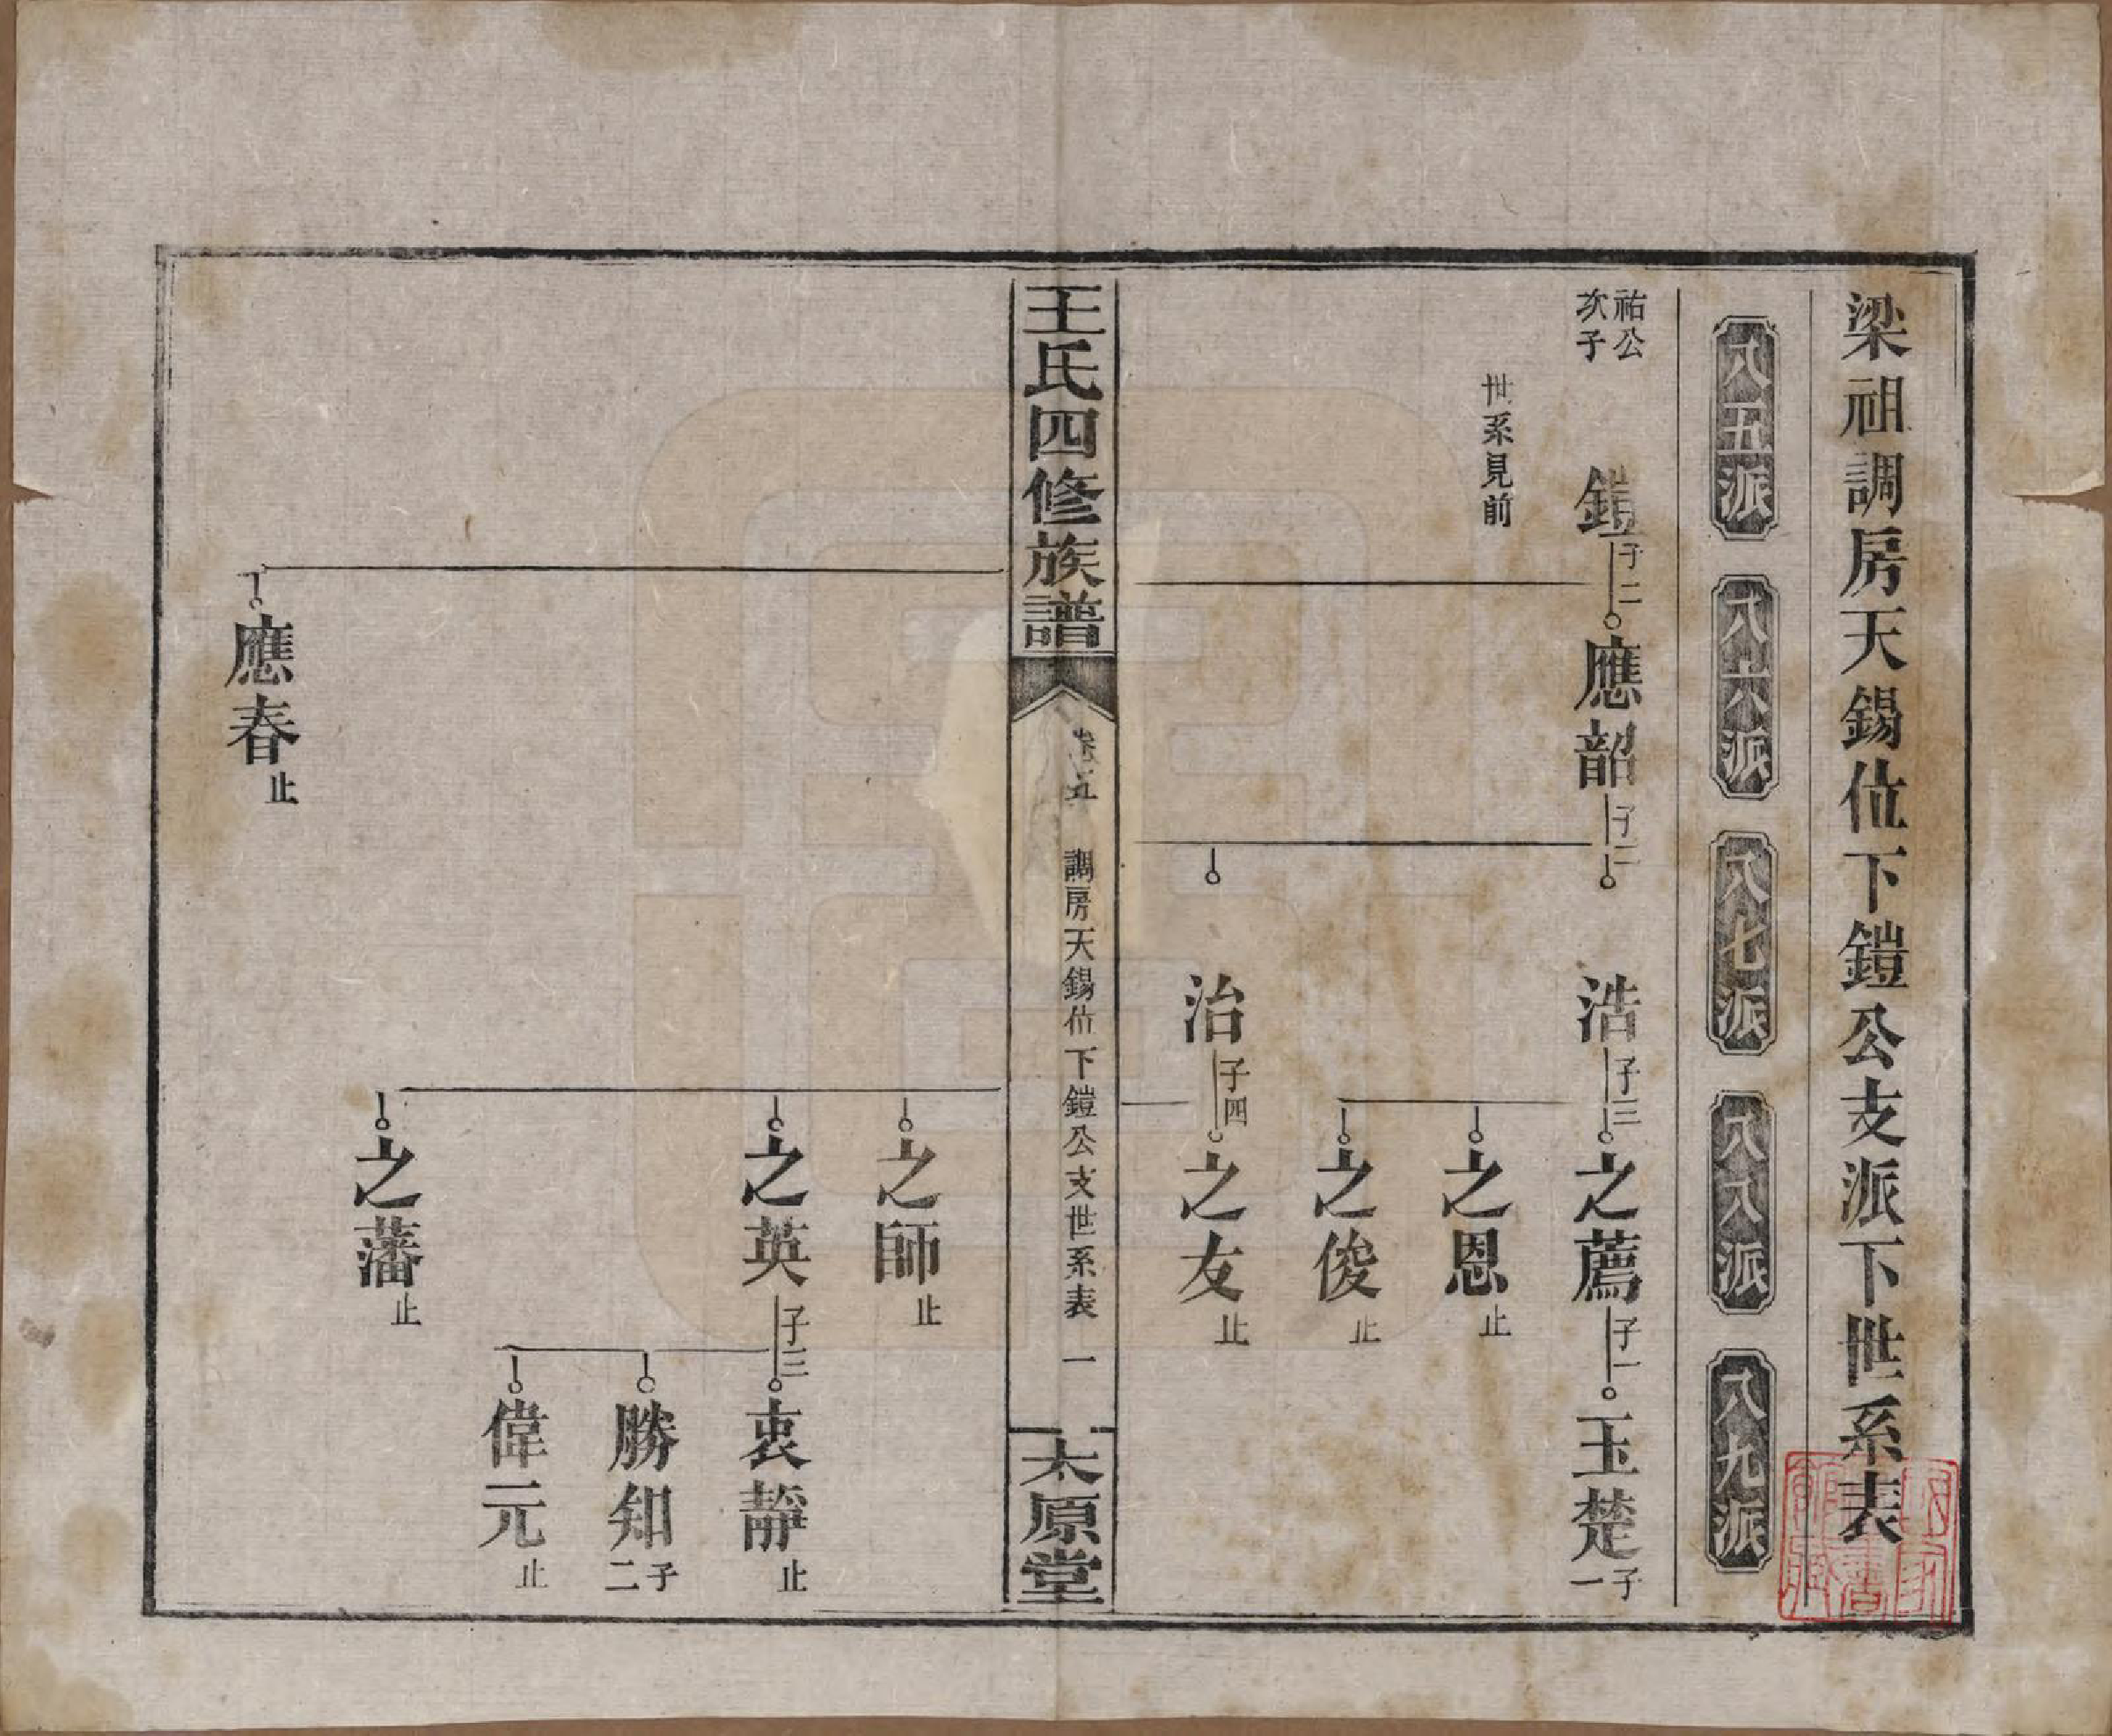 梁祖調房天錫位下鎧公支派下世系表
八五派
八六派
八七派
八八派
八九派
祐公
次子
鎧
子二
應韶
子二
浩
子三
之薦
子一
玉楚
子一
世系見前
之恩
止
之俊
止
治
子四
之友
止
王氏四修族譜
卷五
調房天錫位下鎧公支世系表
一
太原堂
之師
止
之英
子三
衷靜
止
勝知
子二
偉元
止
之藩
止
應春
止